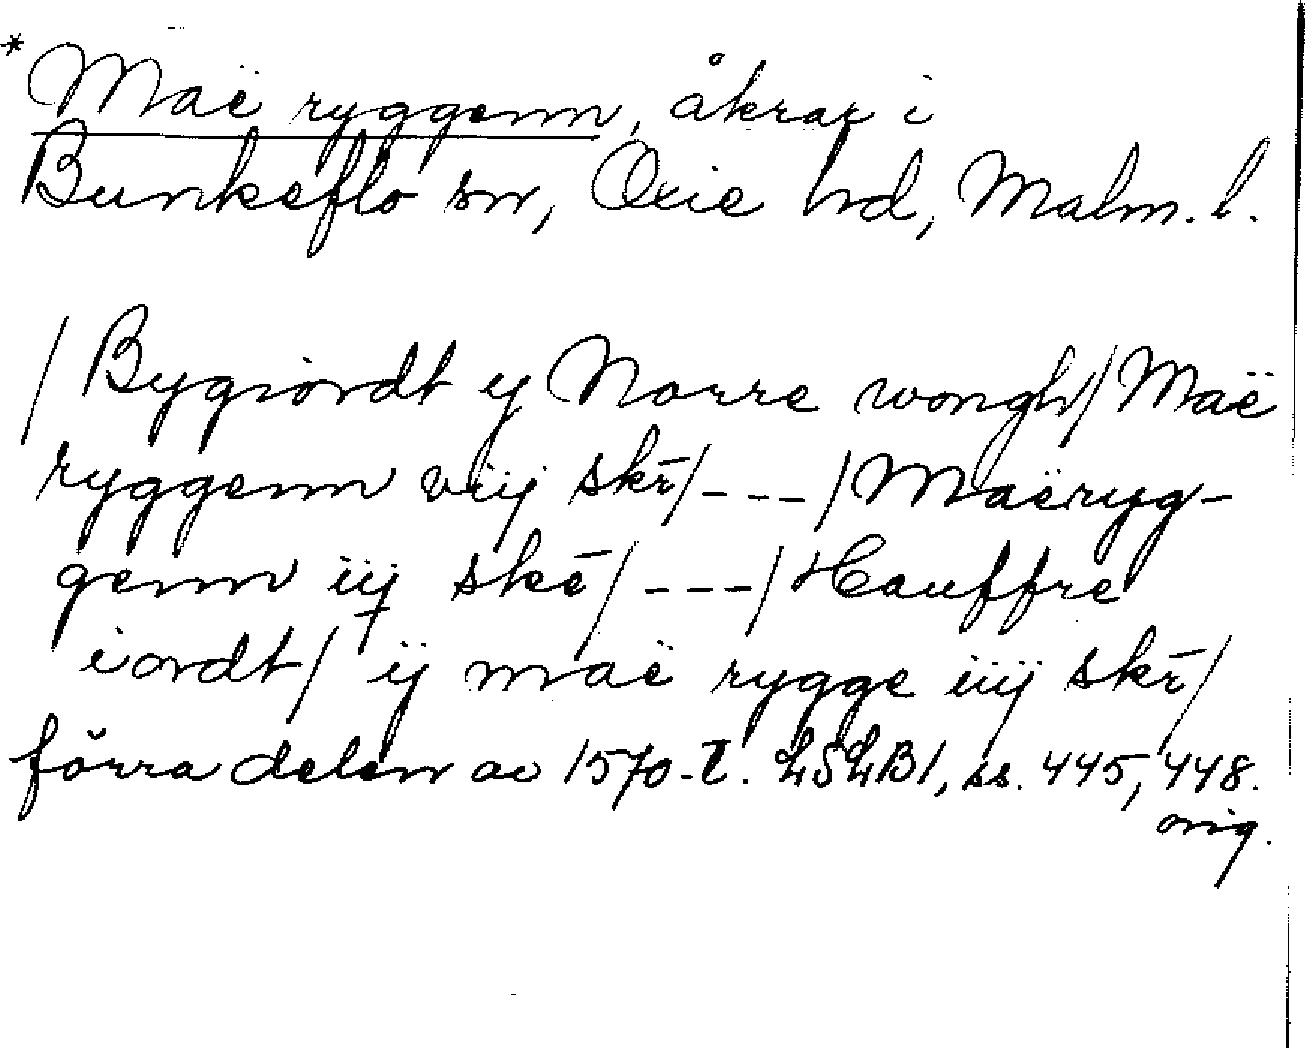 * Maë ryggenn, åkrar i
Bunkeflo sn, Oxie hd, Malm. l.
/ Bygiordt y Norre wongh / Maë
ryggenn viij skr̄ / --- / Maëryg-
genn iij skē / --- / Hauffre
iordt / ij maë rygge iiij skr̄ /
förra delen av 1570-t. LSLB1, ss. 445, 448.
orig.